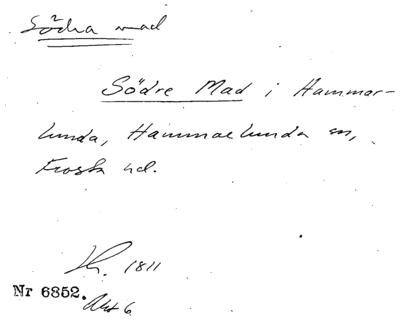 Södra mad
Södre Mad i Hammar-
lunda, Hammarlunda sn,
Frosta hd.
Lh. 1811
Nr 6852. Akt 6